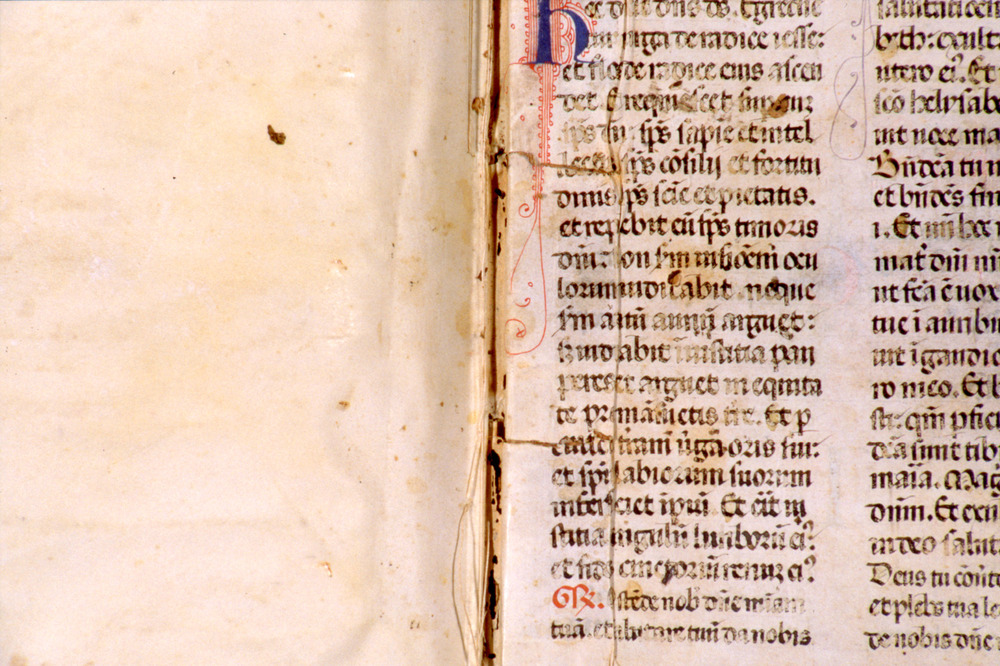 hec dicit dns ds. Egredie
tur uirga de radice iesse:
et flos de radice eius ascen
det. Et requiescet super eum
sps dni. sps sapie et intel
lectus. sps cosilij et fortitu
dinis. sps scie et pietatis.
et replebit eu sps timoris
dni: Non sm uisionem ocu
lorum iudicabit. neque
sm auditu auriu arguet:
Sed iudicabit in iustitia pau
peres et arguet in equita
te pro mansuetis tre. Et p
cutiet terram uirga oris sui:
et spu labiorum suorum
interficiet ipiu. Et erit iu
stitia cingulu lumborum ei9:
et fides cinctoriu renum ei9
GR. Ostende nob dne miam
tua. et salutare tuu da nobis
salutatioem
beth: exulta
utero ei9. Et
sco helisabe
uit uoce ma
Bndcta tu in
et bndcs fru
i. Et un hec
mat dni mi
ut fca e uox
tue i auribus
uit i gaudio
ro meo. Et b
sti: qm pfici
dca sunt tibi
maria. Mag
dnm. Et exu
in deo saluta
Deus tu conu
et plebs tua le
de nobis dne